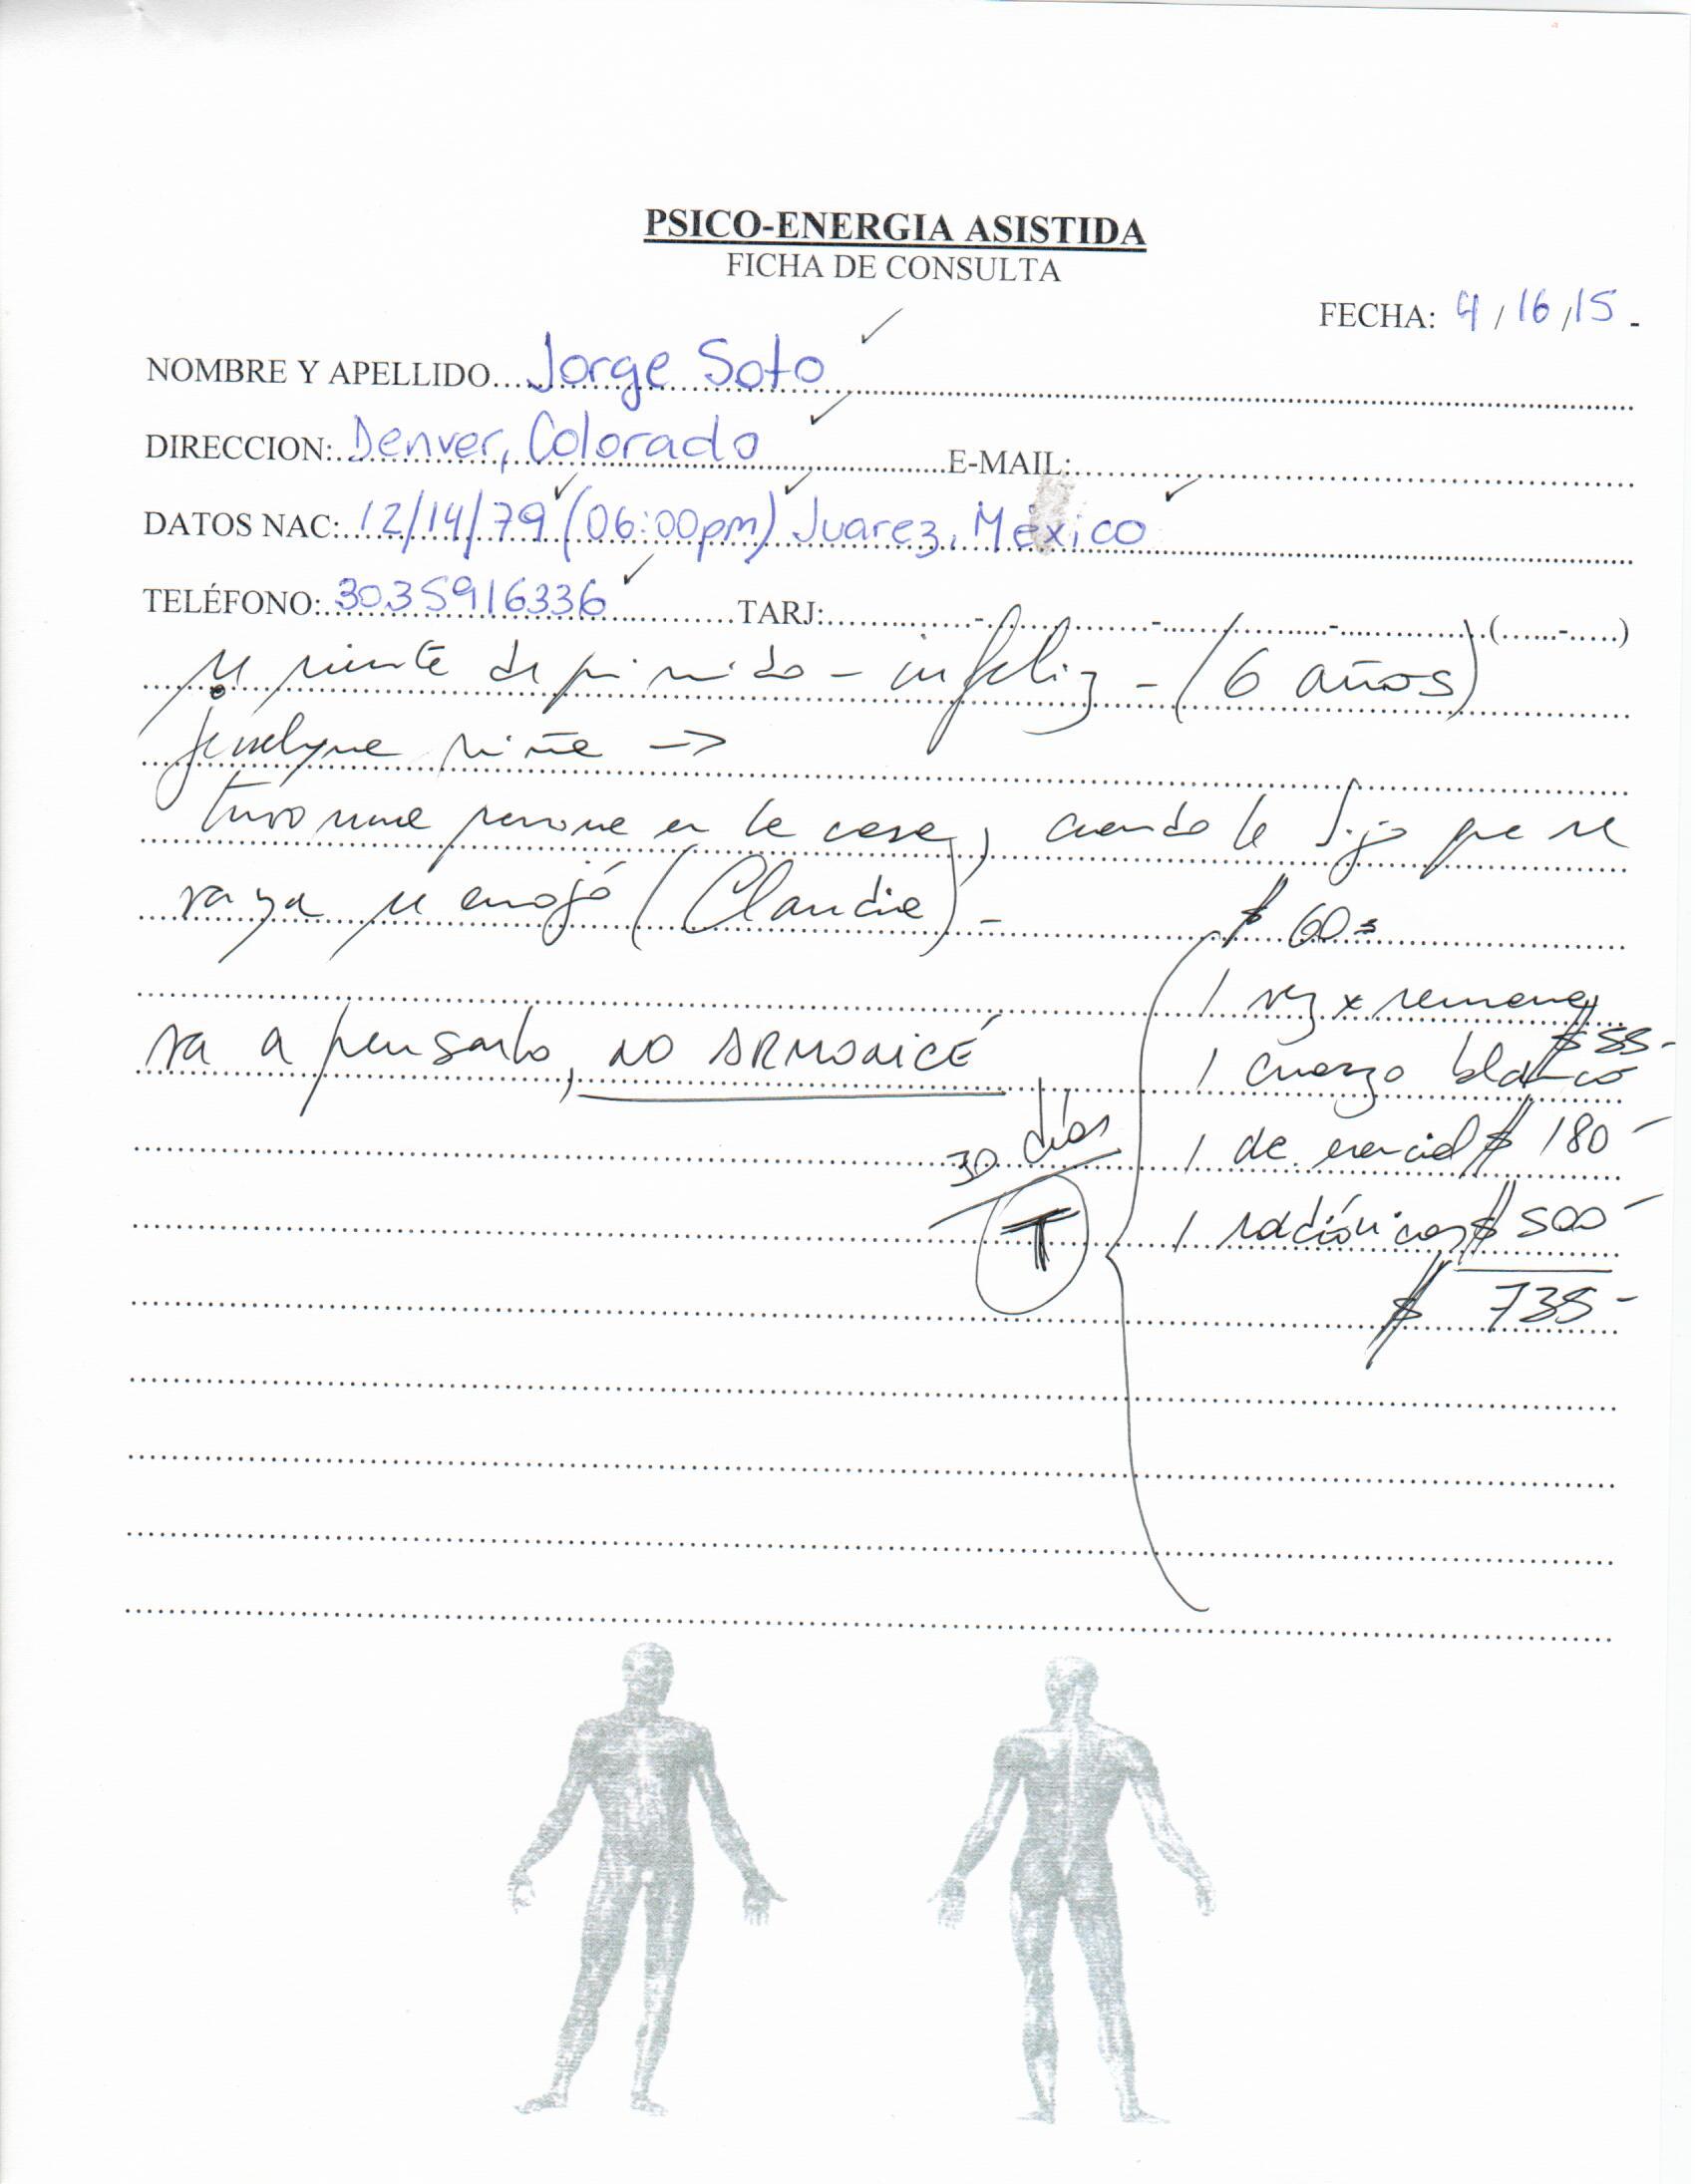 PSICO-ENERGIA ASISTIDA
FICHA DE CONSULTA
FECHA: 4/16/15-
NOMBRE Y APELLIDO....Jorge Soto
DIRECCION:..Denver, Colorado E-MAIL:
DATOS NAC:..12/14/79 (06:00pm) Juarez, México
TELÉFONO:..3035916336 TARJ:..........-..........-..........-..........(......-.....)
se siente deprimido - infeliz - (6 años)
niña ->
tuvo una persona en la casa, cuando le dijo que se
vaya se enojó (Claudia) - $ 60=
1 vez x semana
va a pensarlo, NO ARMONICÉ 1 cuarzo blanco $ 55-
30 días 1 de esencial $ 180-
T 1 radiónicos $ 500-
$ 735-